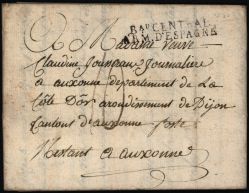 Bau CENTRAL
ARM. D'ESPAGNE
A Madame Veuve
Claudine Jousseau Journalière
a auxonne departement de La
Côte Dor arondissement de Dijon
Canton d'auxonne poste
restant a auxonne